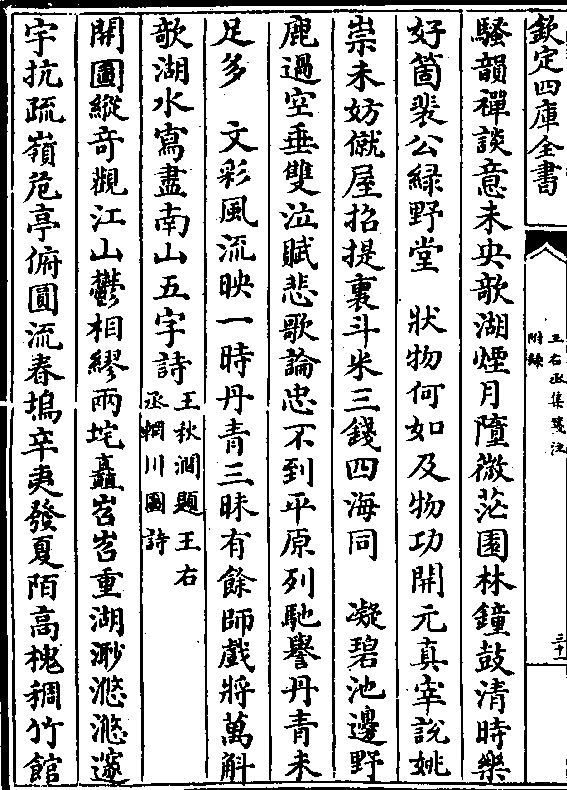 欽定四庫全書
王右丞集箋注
附錄
三十一
騷韻禪談意未央歌湖煙月墮微茫園林鐘鼓清時樂
好箇裴公緑野堂　狀物何如及物功開元真宰說姚
崇未妨僦屋招提裏斗米三錢四海同　凝碧池邊野
鹿過空垂雙泣賦悲歌論忠不到平原列馳譽丹青未
足多　文彩風流映一時丹青三昧有餘師戲將萬斛
歌湖水寫盡南山五字詩
王秋澗題王右
丞輞川圖詩
開圖縱奇觀江山鬱相繆兩垞矗岧岧重湖渺悠悠邃
宇抗疏嶺危亭俯圓流春塢辛夷發夏陌高槐稠竹館